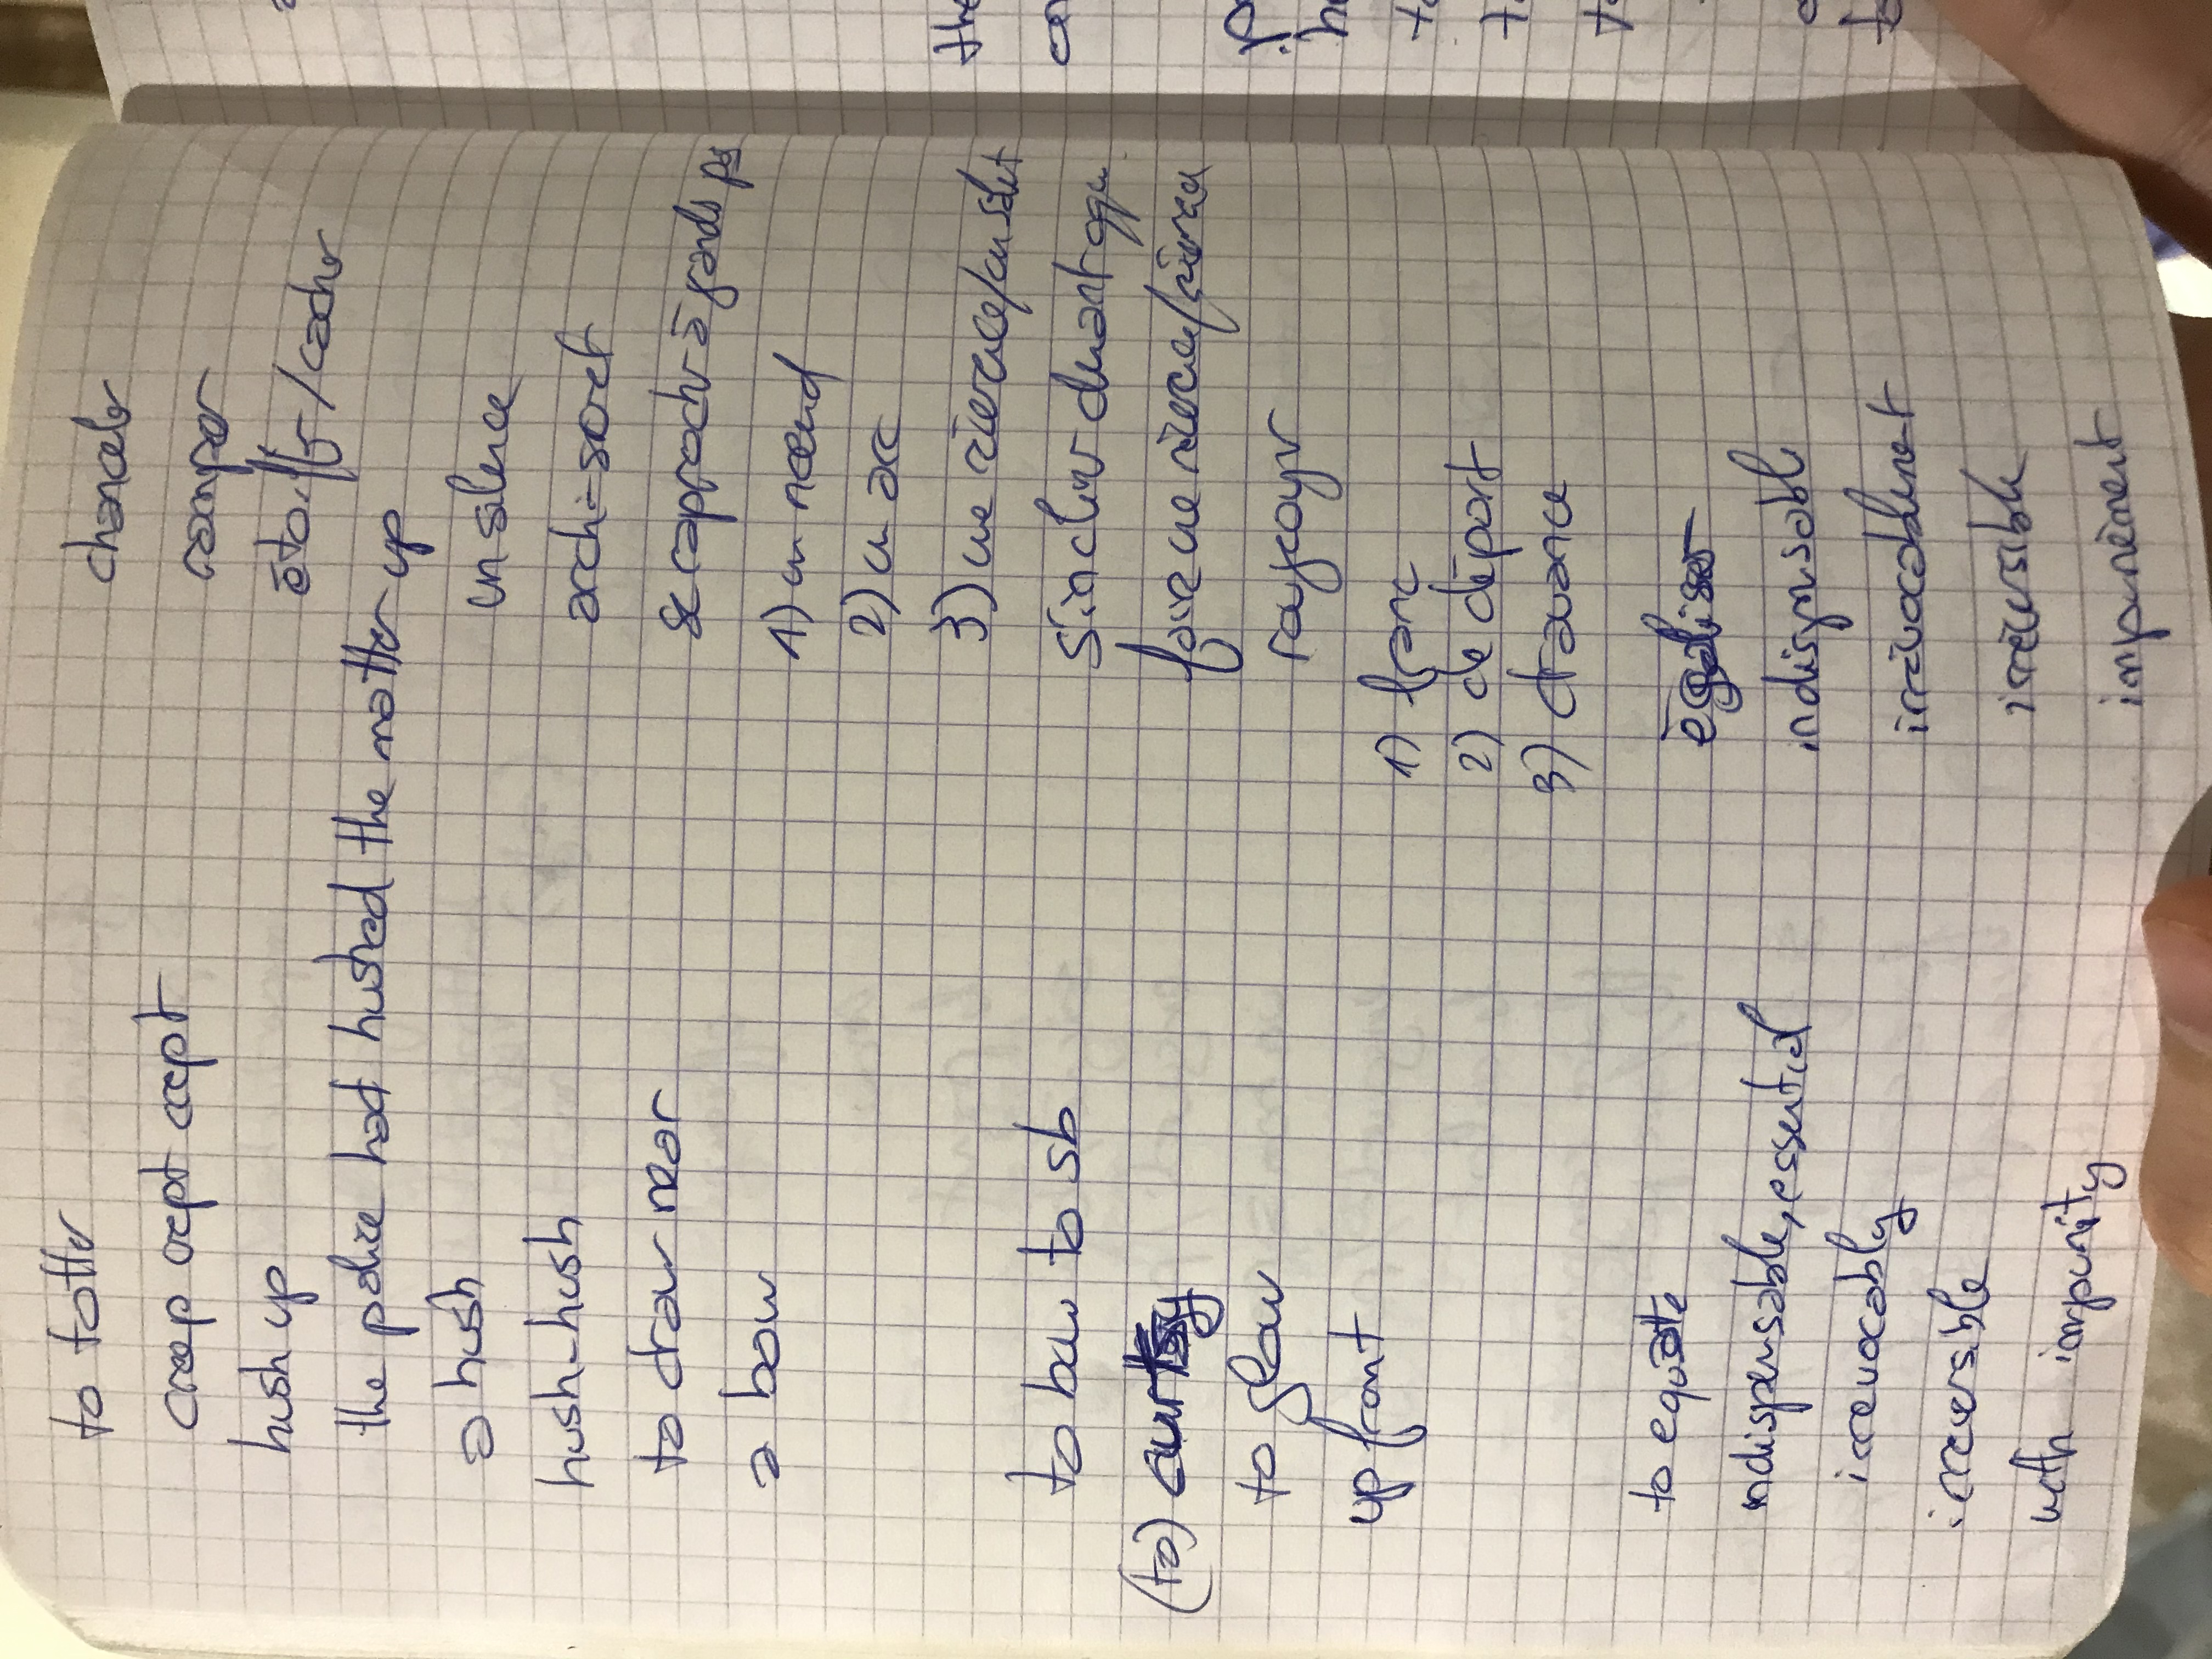 to totter chanceler
creep crept crept ramper
hush up étouffer/cacher
the police had hushed the matter up
a hush un silence
hush-hush archi-secret
to draw near se raprocher à grands pas
a bow 1) un noeud
2) un arc
3) une révérence/un salut
to bow to sb s'incliner devant qqu
(to) curtsy faire une révérence/révérence
to glow rayonner
up front 1) franc
2) de départ
3) d'avance
to equate égaliser
indispensable, essential indispensable
irrevocably irrévocablement
irreversible irréversible
with impunity impunément
the
to